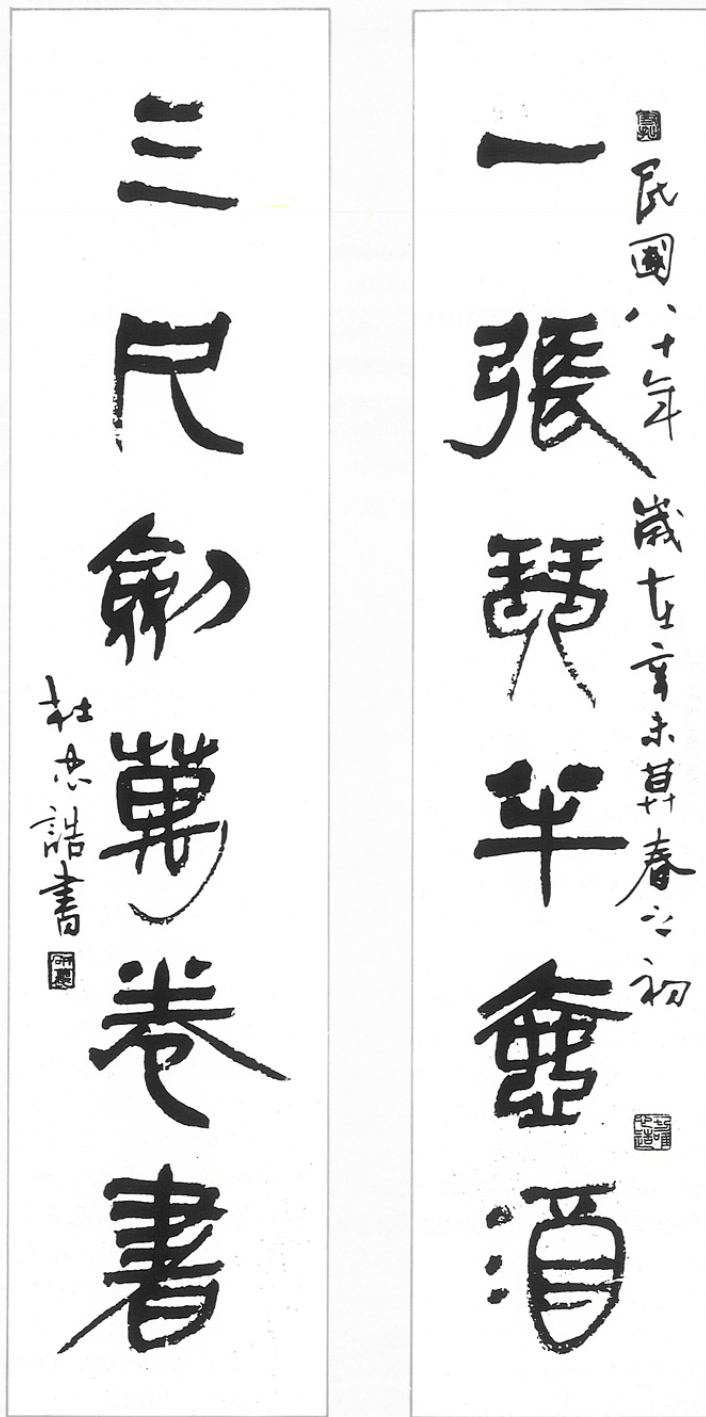 民國八十年歲在辛未莫春之初
一張琴半壺酒
三尺劍萬卷書
杜忠誥書